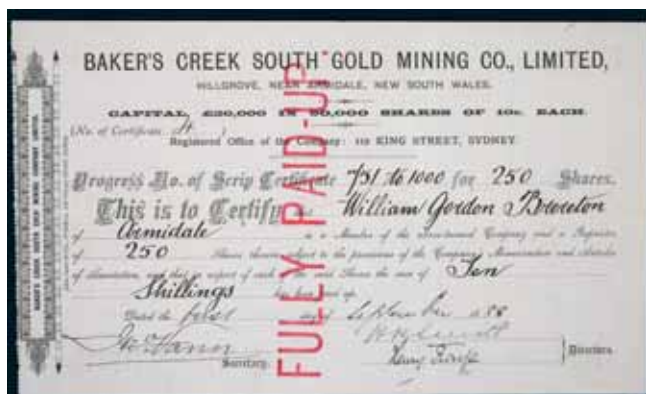 BAKER'S CREEK SOUTH GOLD MINING CO., LIMITED,
HILLGROVE, NEAR ARMIDALE, NEW SOUTH WALES.
CAPITAL, £30,000 IN 60,000 SHARES OF 10s. EACH.
(No. of Certificate
Registered Office of the Company: 112 KING STREET, SYDNEY
Progress No. of Scrip Certificate 751 to 1000 for 250 Shares.
This is to Certify that William Gordon Brereton
of Armidale is a Member of the above-named Company and a Proprietor
of 250 Shares therein, subject to the provisions of the Company's Memorandum and Articles
of Association, and that in respect of each of the said Shares the sum of Ten
Shillings has been paid up.
Dated the first day of September 188
Secretary.
Henry
Directors.
FULLY PAID-UP.
BAKER'S CREEK SOUTH GOLD MINING COMPANY LIMITED.